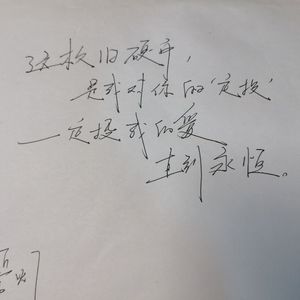 这枚旧硬币，
是我对你的‘定投’
一定投我的爱
直到永恒。